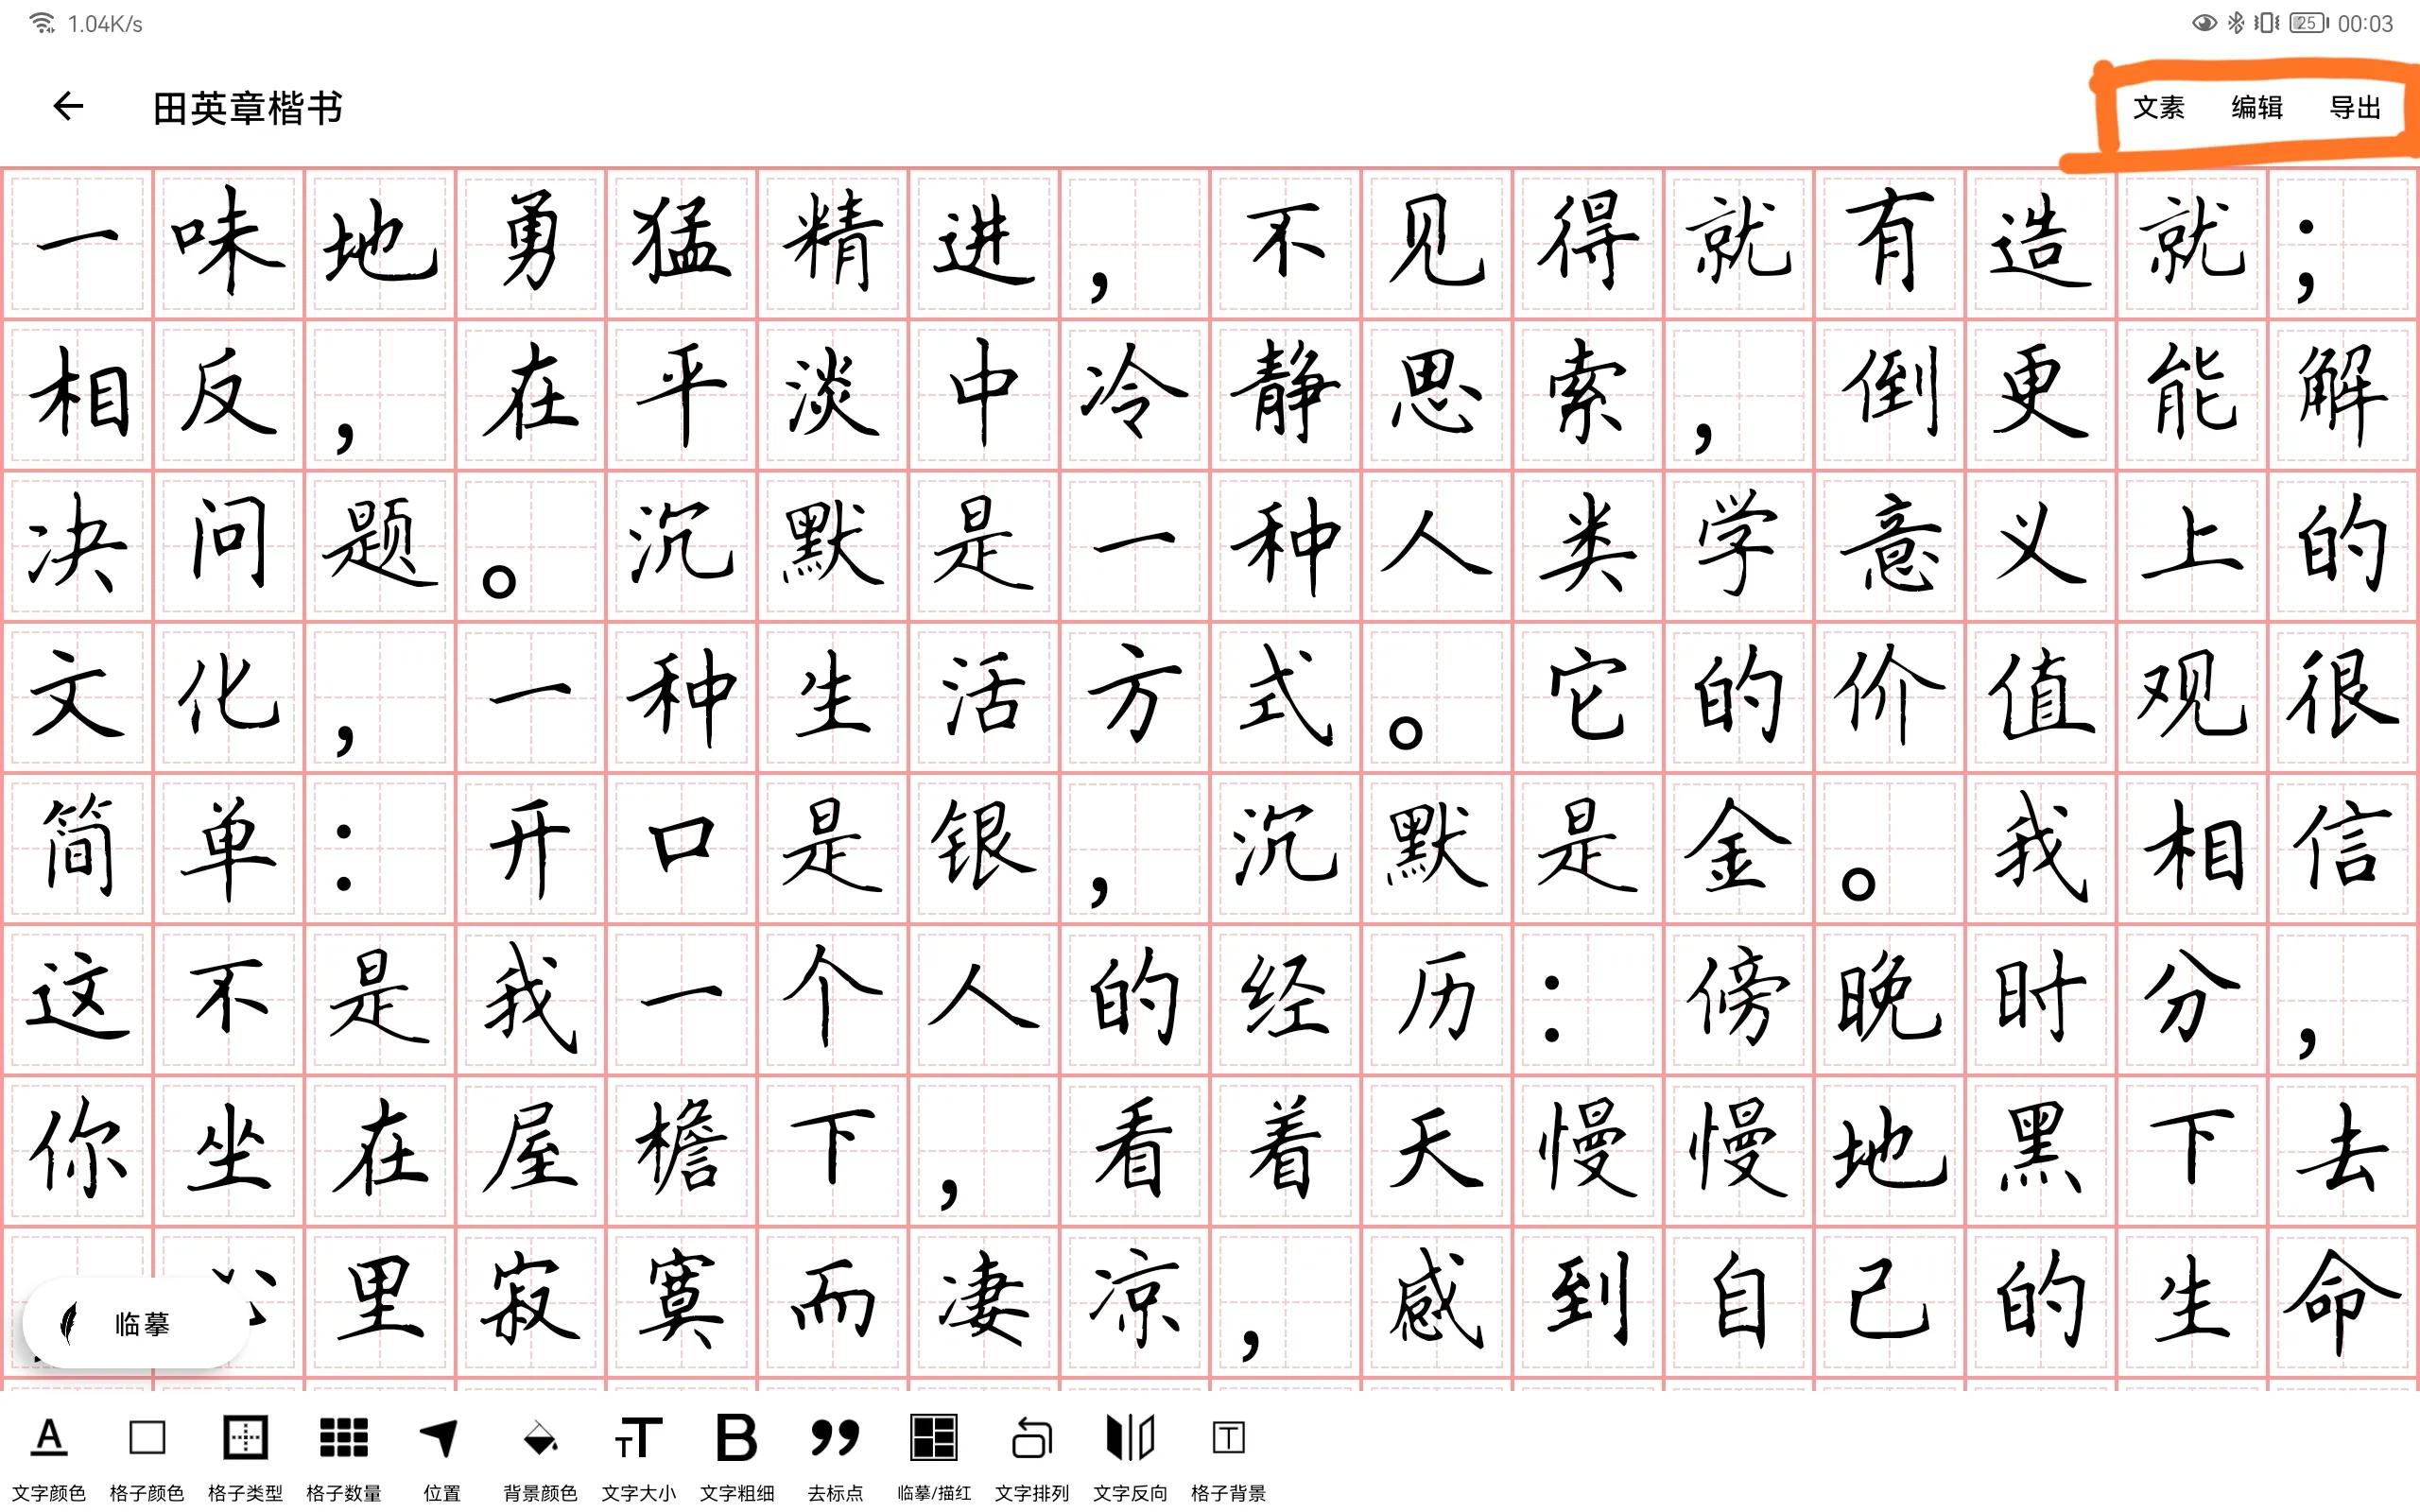 1.04K/s 25 00:03
田英章楷书 文素 编辑 导出
一味地勇猛精进，不见得就有造就；
相反，在平淡中冷静思索，倒更能解
决问题。沉默是一种人类学意义上的
文化，一种生活方式。它的价值观很
简单：开口是银，沉默是金。我相信
这不是我一个人的经历：傍晚时分，
你坐在屋檐下，看着天慢慢地黑下去
里寂寞而凄凉，感到自己的生命
临摹
文字颜色 格子颜色 格子类型 格子数量 位置 背景颜色 文字大小 文字粗细 去标点 临摹/描红 文字排列 文字反向 格子背景